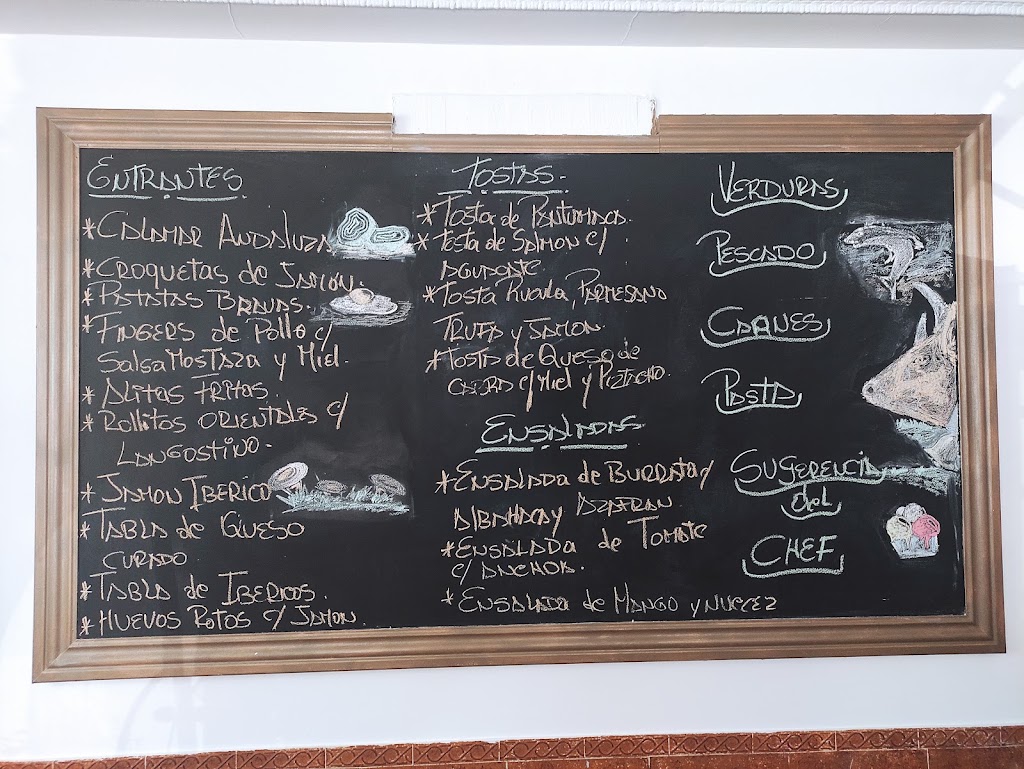 ENTRANTES
* CALAMAR ANDALUZA
* CROQUETAS de JAMON.
* PATATAS BRAVAS.
* FINGERS de Pollo c/
SALSA MOSTAZA y MIEL.
* ALITAS FRITAS.
* ROLLITOS ORIENTALES c/
LANGOSTINO.
* JAMON IBERICO
* TABLA de QUESO
CURADO
* TABLA de IBERICOS.
* HUEVOS ROTOS c/ JAMON.
TOSTAS.
* TOSTA de PANTUMACA.
* TOSTA de SALMON c/
AGUACATE.
* TOSTA RUCULA PARMESANO
TRUFA y JAMON.
* TOSTA de QUESO de
CABRA c/ MIEL y PIZTACHO.
ENSALADAS
* ENSALADA de BURRATA c/
ALBAHACA y AZAFRAN
* ENSALADA de TOMATE
c/ ANCHOA.
* ENSALADA de MANGO y NUECEZ
VERDURAS
PESCADO
CARNES
PASTA
SUGERENCIA
del
CHEF